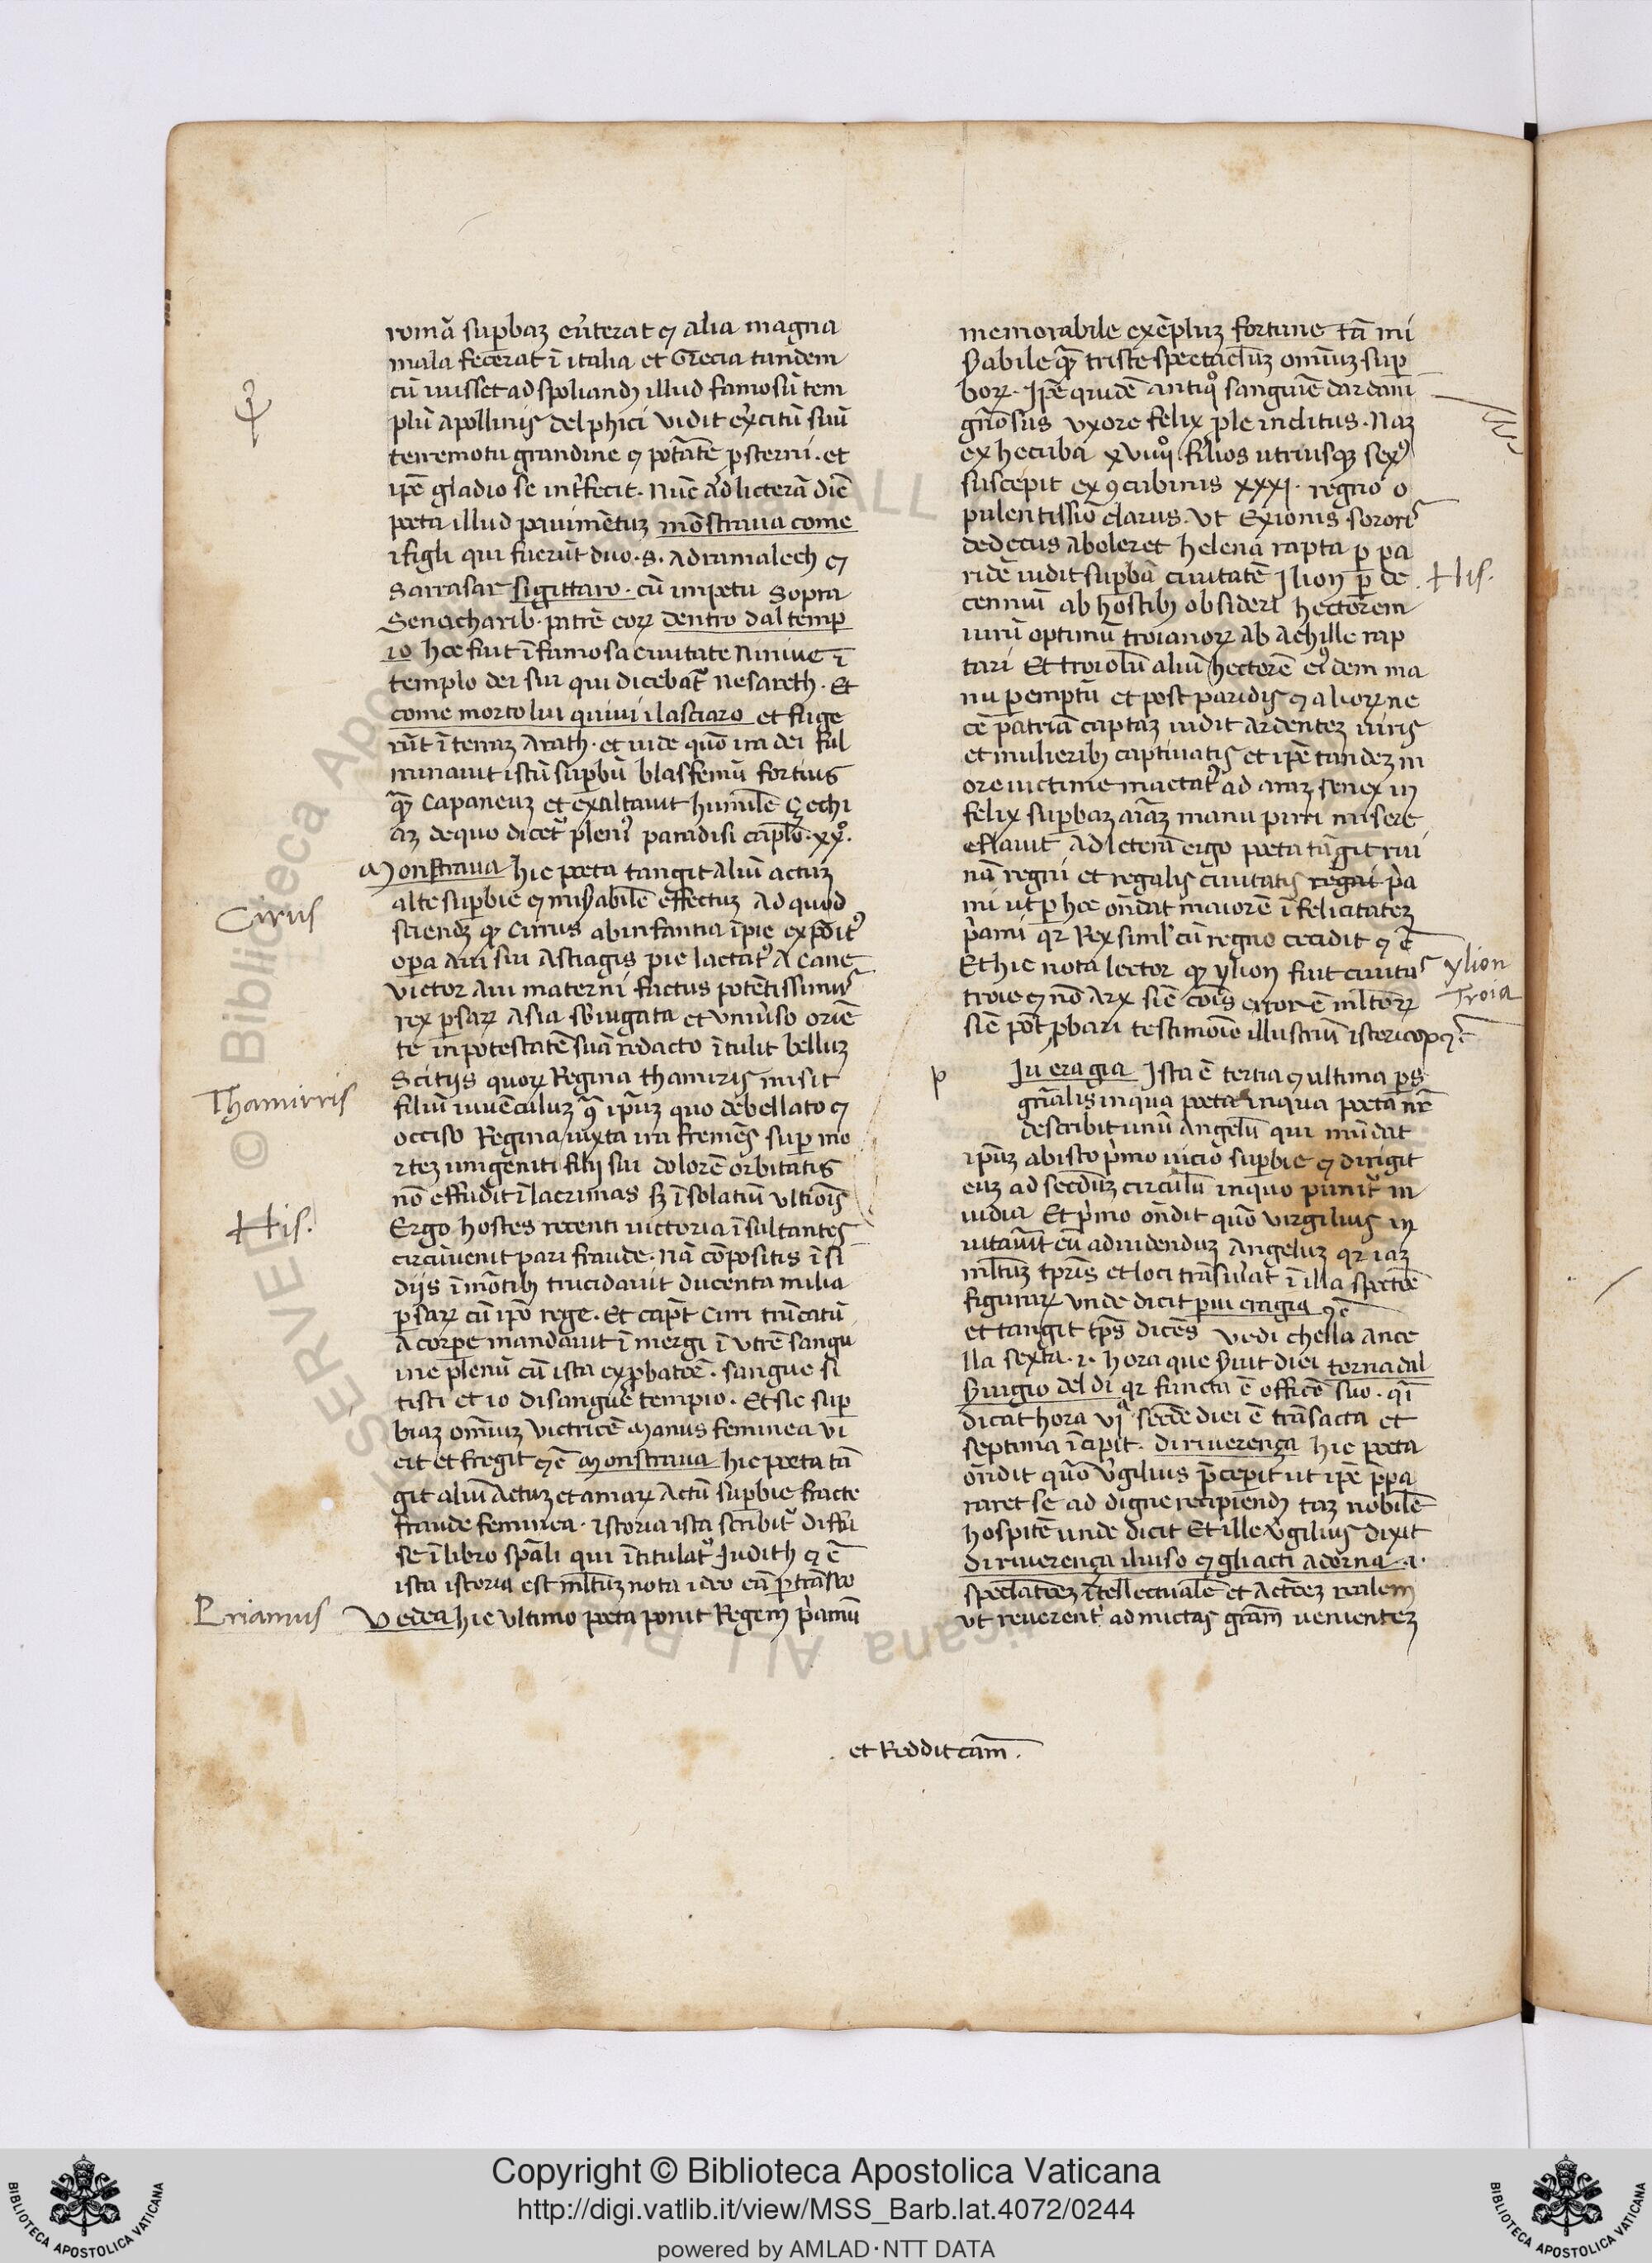 romā suꝑbaꝫ eu̾terat ⁊ alia magna
mala fecerat ī italia et Grecia tandem
cū iuisset ad spoliandꝫ illud famosū tem
plū apollinis delphici vidit ex̾citū suū
terremotu grandine ⁊ potātē ꝓsterni . et
ip̄e gladio se int̾fecit . Nūc ad licterā diē
poeta illud pauimētuꝫ mōstraua come
i figli qui fuerūt duo .s. adramalech ⁊
Sarrasar si gittaro . cū impetu sopra
Senacharib . patrē eoꝝ dentro dal temp
io hoc fuit ī famosa ciuitate Niniue ī
templo dei sui qui dicebat᷑ Nesareth . Et
come morto lui quiui il asciaro et fuge
rūt ī terraꝫ Arath . et vide quō ira dei ful
minauit istū suꝑbū blasfemū fortius
qꝫ Capaneuꝫ et exaltauit humilē Çechi
aꝫ de quo dicet᷑ pleni᷒ paradisi capl̄o . xx̊.
Monstraua hic poeta tangit aliū actuꝫ
alte suꝑbie ⁊ mis̾abilē effectuꝫ Ad quod
sciendꝫ ꝙ Cirrus ab infantia īpie exp̄dit᷒
opa aui sui Astiagis pie lactat᷒ a cane
victor aui materni factus potētissimus
rex ꝑsaꝝ Asia sb̄iugata et vniu̾so oriē
te in potestatē suā redacto ītulit belluꝫ
Scitijs quoꝝ Regina thamiris misit
filiū iuuēculuꝫ ꝯ̄ ip̄uꝫ quo debellato ⁊
occiso Regina iuxta ira fremēs super mo
rteꝫ unigeniti filij sui dolorē orbitatis
nō effudit ī lacrimas sꝫ ī solatiū ultiōis
Ergo hostes recenti uictoria īsultantes
circūuenit pari fraude . Nā cōpositis īsi
dijs ī mōtibꝫ trucidauit ducenta milia
ꝑsaꝝ cū ip̄o rege . Et capt̄ Ciri trūcatū
a corpe mandauit ī mergi ī utrē sangu
ine plenū cū ista exꝓbatōe . sangue si
tisti et io di sangue tempio . Et sic sup
biaꝫ om̄iuꝫ victricē manus feminea vi
cit et fregit ⁊c̄ Monstraua hic poeta tā
git aliū Actuꝫ et amaꝝ Actū suꝑbie fracte
fraude feminea . istoria ista scribit᷑ diffu
se ī libro sp̄ali qui ītitulat᷑ Judith ⁊ ē
ista istoria est ml̄tuꝫ nota ideo eā ꝑtrāseo
Vedea hic ultimo poeta ponit Regem p̾amū
Cirus
Thamirris
His.
Priamus
memorabile exēpluꝫ fortune tā mi
s̾abile qꝫ triste spectacl̄uꝫ om̄iuꝫ sup
boꝝ . Ip̄e quidē antiq᷒ sanguīe dardani
gn̄osus vxore felix ꝓle inclitus . Naꝫ
ex hecuba xviiij̊ filios utriusqꝫ sex᷒
suscepit ex ꝯcubinis xxxj . regno o
pulentissīo clarus . Ut Exionis sororis
dedecus aboleret helena rapta ꝑ pa
ridē uidit suꝑbā ciuitatē Ilion ꝑ de
cenniū ab hostibꝫ obsideri hectorem
uirū optimū troianoꝝ ab Achille rap
tari Et troiolū aliū hectorē ei᷒dem ma
nu ꝑemptū et post paridis ⁊ alioꝝ ne
cē patriā captaꝫ uidit ardenteꝫ uiris
et mulieribꝫ captiuatis et ip̄e tandeꝫ in
ore uictime mactat᷒ ad araꝫ senex in
felix suꝑbaꝫ aīaꝫ manu pirri misere
efflauit Ad lcterā ergo poeta tāgit rui
nā regni et regalis ciuitatis regni p̾a
mi ut ꝑ hoc ōndat maiorē īfelicitateꝫ
p̾ami qꝛ Rex siml̾ cū regno cecidit ⁊c̄
Et hic nota lector ꝙ ylion fuit ciuitas
troie ⁊ nō Arx sic̄ cōis error ē ml̄toꝝ
sic̄ pōt ꝓbari testimōio illustriū istoricoꝝ ⁊c̄.
p
Iu eragia Ista ē tertia ⁊ ultima ps
gn̄alis in qua poeta in qua poeta nr̄
describit unū Angelū qui mūdat
ip̄uꝫ ab isto p̾mo uicio suꝑbie ⁊ dirigit
euꝫ ad secūduꝫ circulū in quo punit᷑ in
uidia Et p̾mo ōndit quō virgilius in
uitauit eū ad uidenduꝫ Angeluꝫ qꝛ iaꝫ
ml̄tuꝫ tp̄ris et loci trāsiu̾at ī illa spectōe
figuraꝝ unde dicit piu eragia ⁊c̄
et tangit tp̄s dicēs vedi che lla ance
lla sexta .i. hora que s̾uit diei torna dal
s̾uigio del di qꝛ functa ē officō suo . q̄i
dicat hora vj̄ᵃ secd̄e diei ē trāsacta et
septima īcipit . di riuerença hic poeta
ōndit quō v̾gilius p̄cepit ut ip̄e p̄pa
raret se ad digne recipiendꝫ taꝫ nobilē
hospitē unde dicit Et ille v̾gilius dixit
di riuerença il uiso ⁊ gli acti adorna .i.
specl̄atōeꝫ ītellectualē et actōeꝫ realem
ut reuerent᷑ admictas gr̄am uenientez
His.
ylion
Troia
. et Reddit cam̄ .
Copyright © Biblioteca Apostolica Vaticana
http://digi.vatlib.it/view/MSS_Barb.lat.4072/0244
powered by AMLAD·NTT DATA
BIBLIOTECA APOSTOLICA VATICANA
BIBLIOTECA APOSTOLICA VATICANA